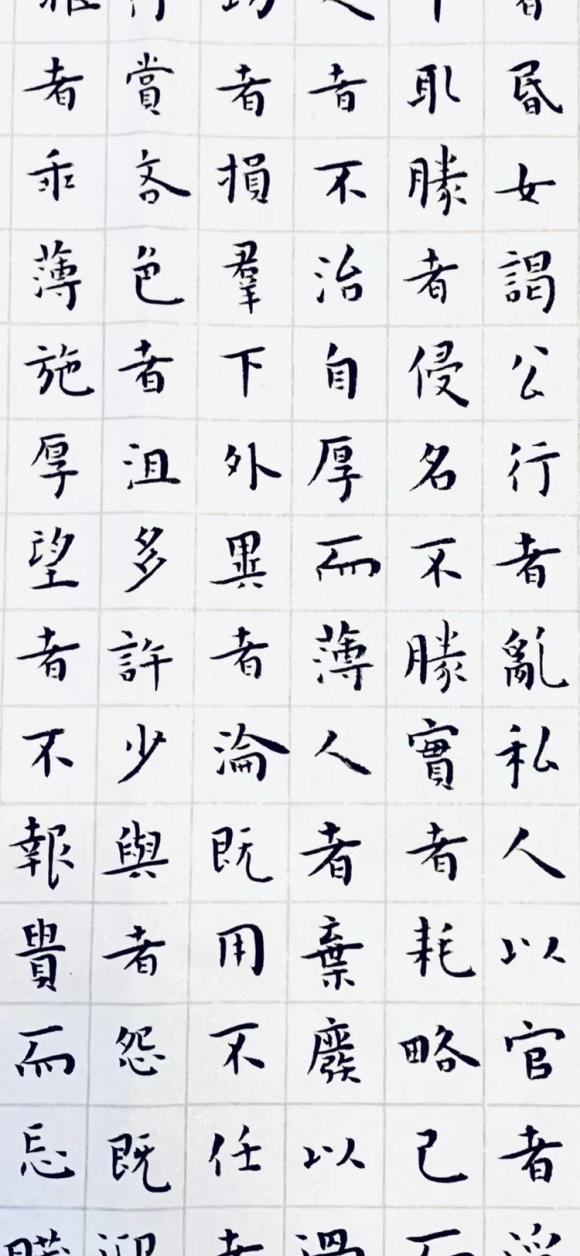 昏女謁公行者亂私人以官者
取勝者侵名不勝實者耗略己
者不治自厚而薄人者棄廢以
者損羣下外異者淪既用不任
賞吝色者沮多許少與者怨既
者乖薄施厚望者不報貴而忘